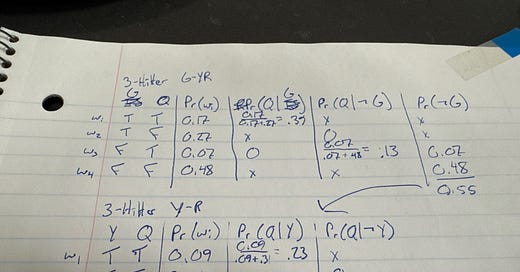 3-Hitter G-YR
G Q Pr(wi) Pr(Q|G) Pr(Q|¬G) Pr(¬G)
w1 T T 0.17 0.17/0.17+.27=.39 x x
w2 T F 0.27 x 0 x
w3 F T 0.07 0 0.07/.07+.48=.13 0.07
w4 F F 0.48 x x 0.48
0.55
3-Hitter Y-R
Y Q Pr(wi) Pr(Q|Y) Pr(Q|¬Y)
w1 T T 0.09 0.09/.09+.31=.23 x